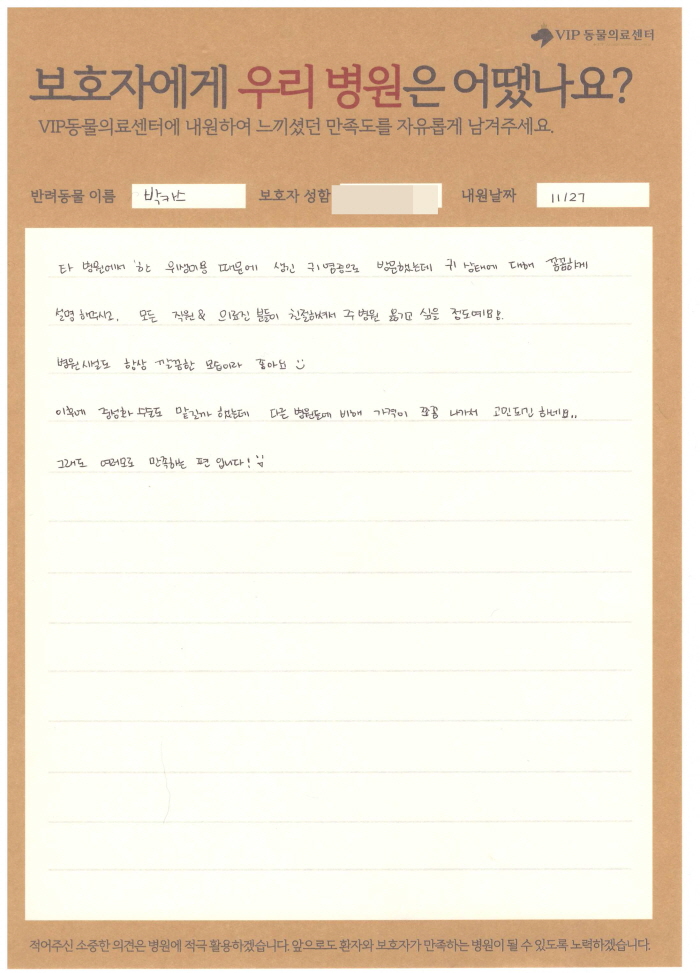 VIP 동물의료센터
보호자에게 우리 병원은 어땠나요?
VIP동물의료센터에 내원하여 느끼셨던 만족도를 자유롭게 남겨주세요.
반려동물 이름 박카스 보호자 성함 내원날짜 11/27
타 병원에서 한 위생미용 때문에 생긴 귀염증으로 방문했는데 귀 상태에 대해 꼼꼼하게
설명해주시고, 모든 직원 & 의료진 분들이 친절하셔서 주병원 옮기고 싶을 정도예요!
병원시설도 항상 깔끔한 모습이라 좋아요
이후에 중성화 수술도 맡길까 했는데 다른 병원들에 비해 가격이 쪼끔 나가서 고민되긴 하네요..
그래도 여러모로 만족하는 편입니다!
적어주신 소중한 의견은 병원에 적극 활용하겠습니다. 앞으로도 환자와 보호자가 만족하는 병원이 될 수 있도록 노력하겠습니다.